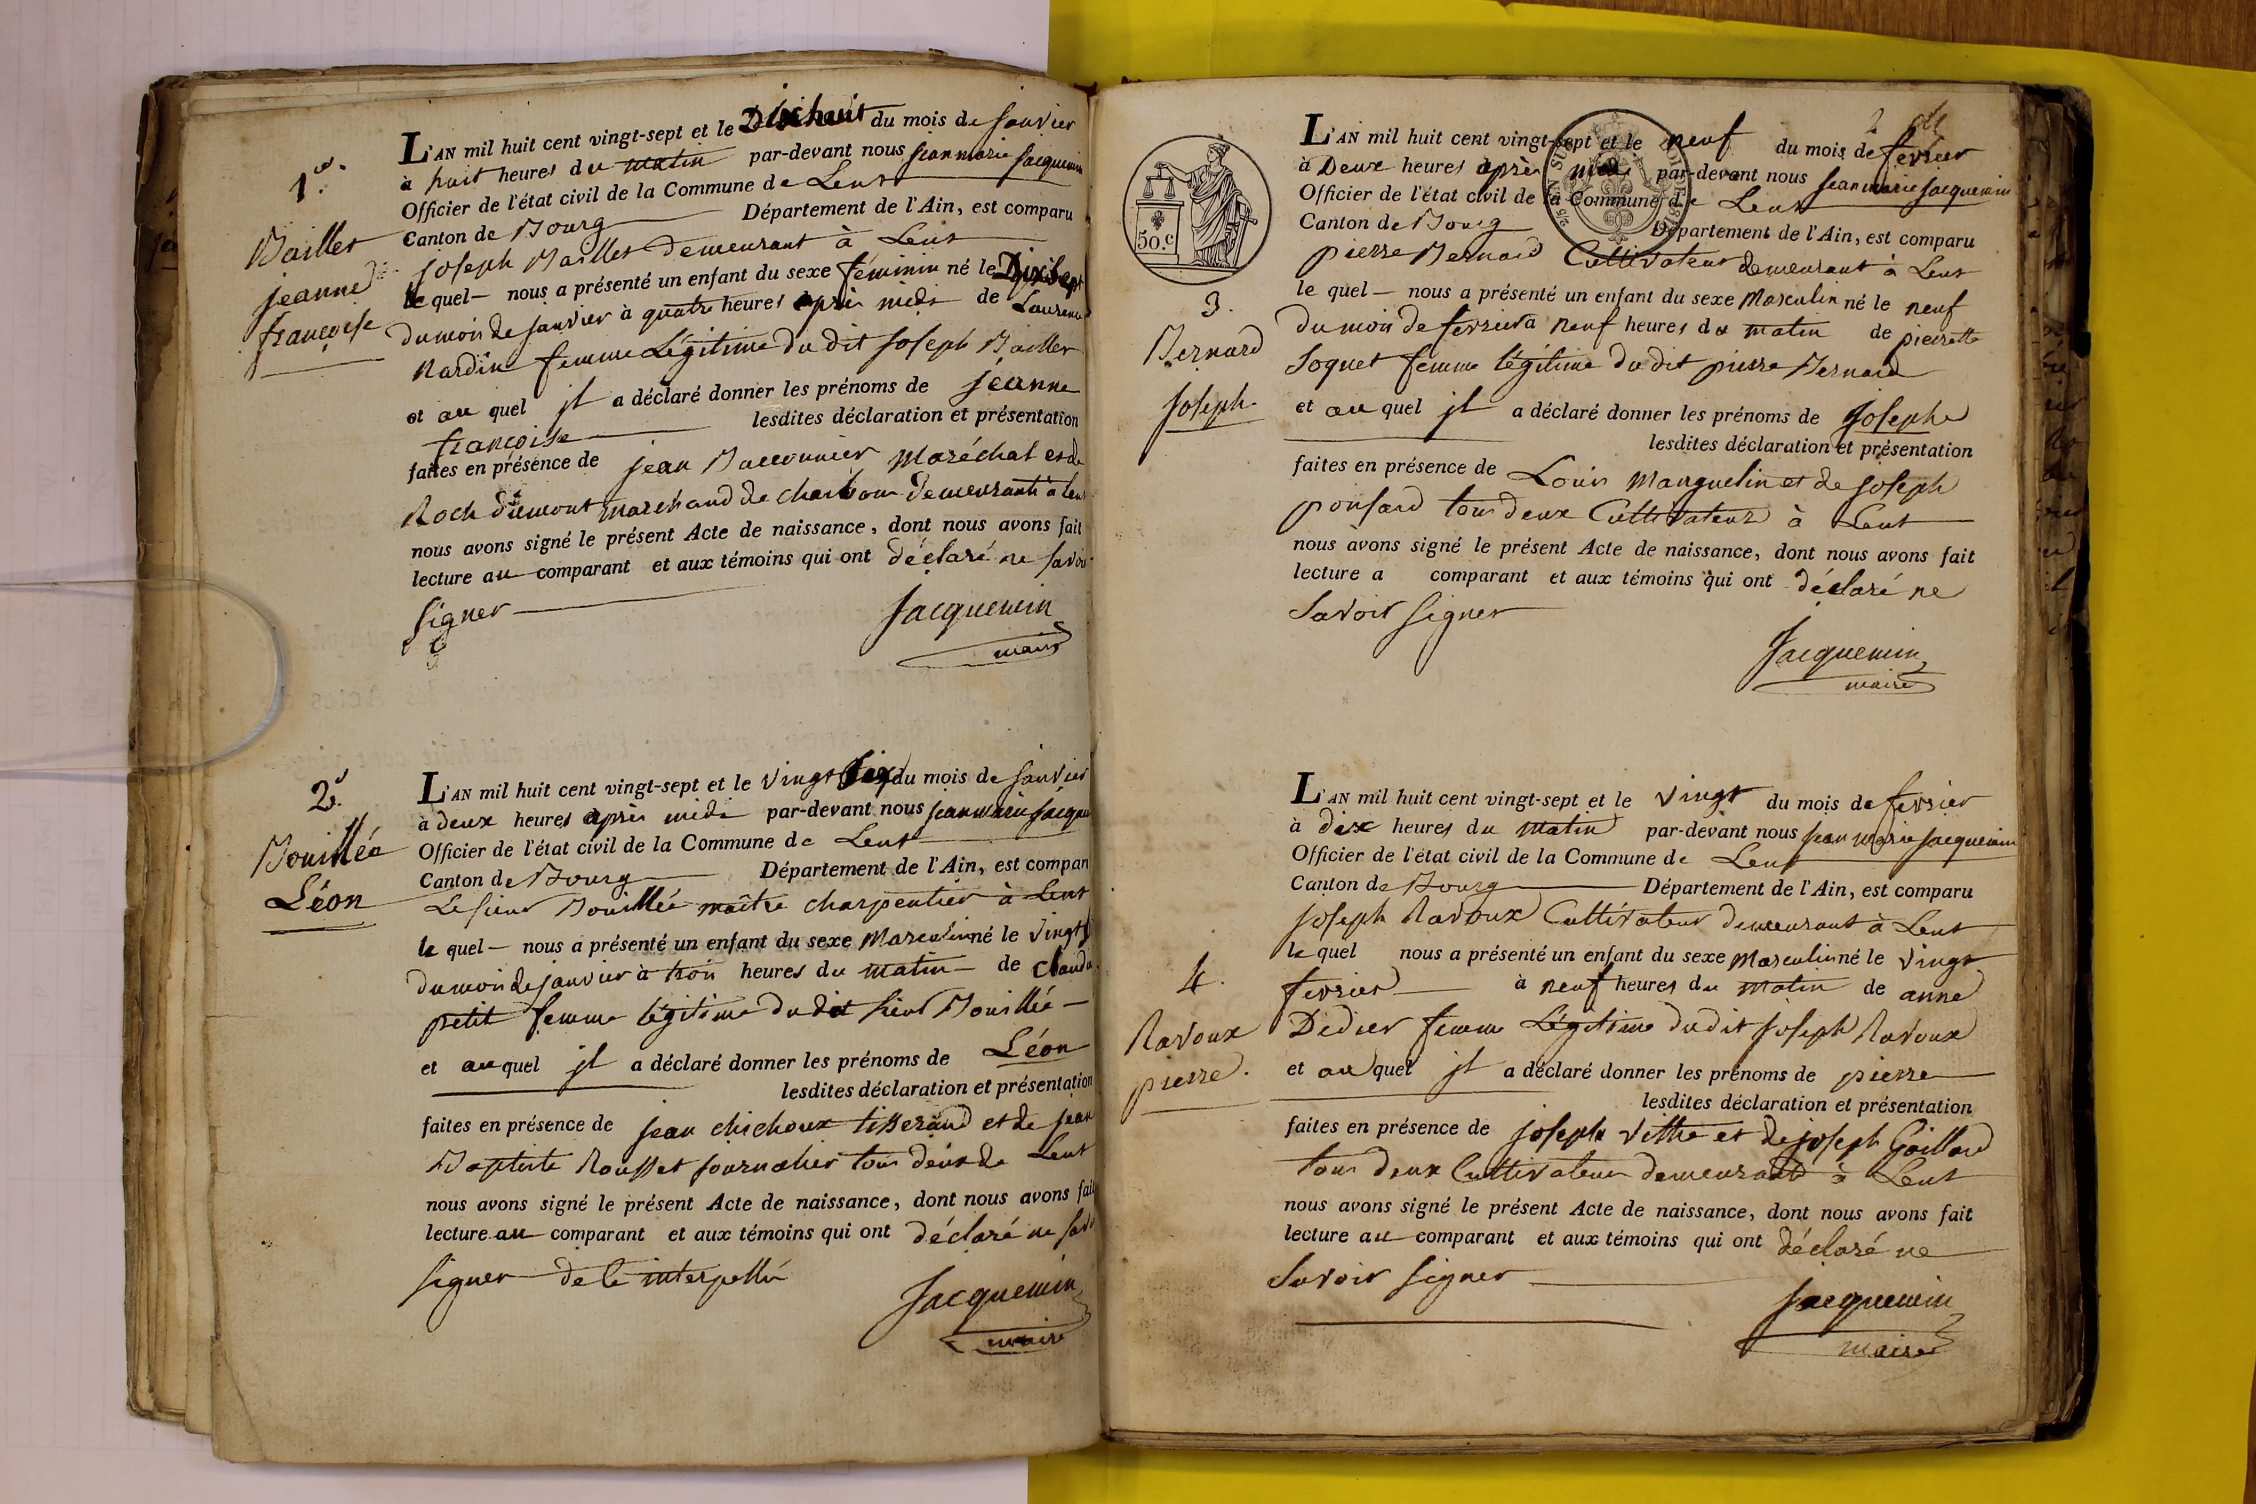 1.er
Baillet
jeanne
françoise
L'AN mil huit cent vingt-sept et le Dixhuit du mois de janvier
à huit heures du matin par-devant nous jean marie jacquemin
Officier de l'état civil de la Commune de Lent
Canton de Bourg Département de l'Ain, est comparu
joseph Baillet demeurant à Lent
le quel nous a présenté un enfant du sexe féminin né le Dixsept
du mois de janvier à quatre heures après midi de Laurence
Nardin femme Légitime du dit joseph Baillet
et au quel jl a déclaré donner les prénoms de jeanne
françoise lesdites déclaration et présentation
faites en présence de jean Maréchal et de
Roch marchand de charbon demeurants à Lent
nous avons signé le présent Acte de naissance, dont nous avons fait
lecture au comparant et aux témoins qui ont déclaré ne savoir
signer
Jacquemin
maire
2.e
Bouillée
Léon
L'AN mil huit cent vingt-sept et le vingt six du mois de janvier
à deux heures après midi par-devant nous jean marie jacque
Officier de l'état civil de la Commune de Lent
Canton de Bourg Département de l'Ain, est compar
Le sieur Bouillée maître charpentier à Lent
le quel nous a présenté un enfant du sexe Masculin né le vingt
du mois de janvier à trois heures du matin de
petit femme légitime du dit sieur Bouillée
et au quel jl a déclaré donner les prénoms de Léon
lesdites déclaration et présentation
faites en présence de jean chichoux tisserand et de jean
Baptiste Rousset journalier tous deux de Lent
nous avons signé le présent Acte de naissance, dont nous avons fait
lecture au comparant et aux témoins qui ont déclaré ne savo
signer de ce interpellés
Jacquemin
maire
50.c
3.
Bernard
joseph.
L'AN mil huit cent vingt-sept et le neuf du mois de fevrier
à Deux heures après midi par-devant nous jean marie jacquemin
Officier de l'état civil de la Commune de Lent
Canton de Bourg Département de l'Ain, est comparu
pierre Bernard Cultivateur demeurant à Lent
le quel nous a présenté un enfant du sexe Masculin né le neuf
du mois de fevrier à neuf heures du matin de pierrette
Soquet femme légitime du dit pierre Bernard
et au quel jl a déclaré donner les prénoms de joseph
lesdites déclaration et présentation
faites en présence de Louis Manguelin et de joseph
ponsard tous deux Cultivateurs à Lent
nous avons signé le présent Acte de naissance, dont nous avons fait
lecture a comparant et aux témoins qui ont déclaré ne
Savoir signer
Jacquemin
maire
4.
Ravoux
pierre.
L'AN mil huit cent vingt-sept et le vingt du mois de fevrier
à dix heures du matin par-devant nous jean marie jacquemin
Officier de l'état civil de la Commune de Lent
Canton de Bourg Département de l'Ain, est comparu
joseph Ravoux Cultivateur demeurant à Lent
le quel nous a présenté un enfant du sexe Masculin né le vingt
fevrier à neuf heures du matin de anne
Didier femme Légitime du dit joseph Ravoux
et au quel jl a déclaré donner les prénoms de pierre
lesdites déclaration et présentation
faites en présence de joseph vithe et de joseph Gaillard
tous deux Cultivateurs demeurant à Lent
nous avons signé le présent Acte de naissance, dont nous avons fait
lecture au comparant et aux témoins qui ont déclaré ne
Savoir signer
Jacquemin
maire